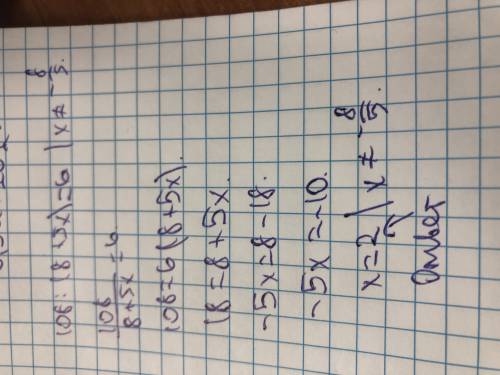 108:(8+5x)=6 | x≠-8/5.
108/8+5x=6
108=6(8+5x).
18=8+5x.
-5x=8-18.
-5x=-10.
x=2 | x≠-8/5.
Ответ